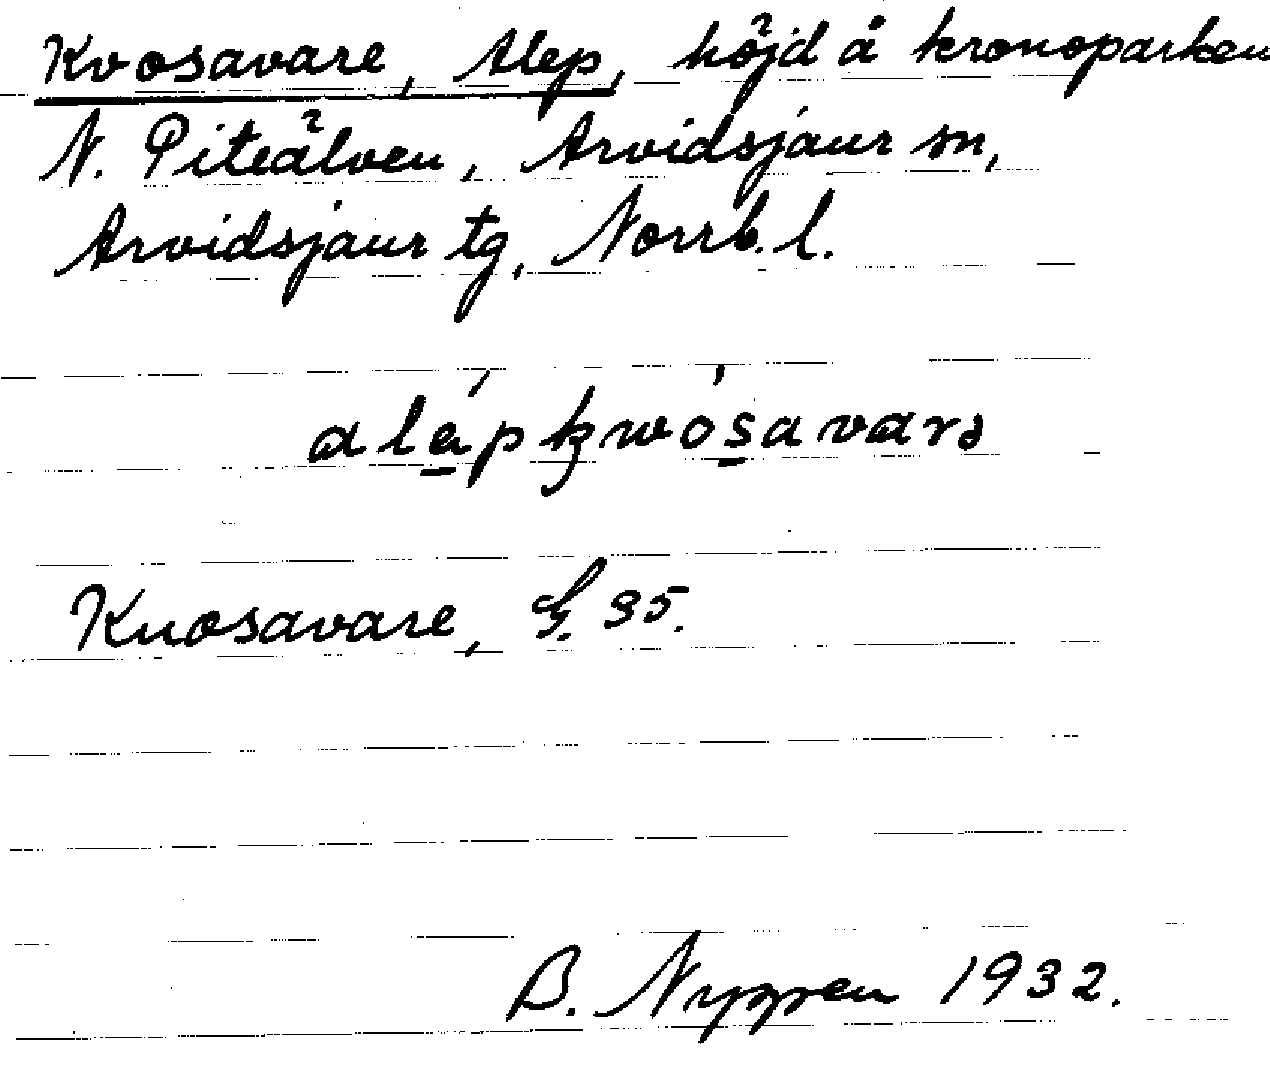 Kvosavare, Alep, höjd å kronoparken
N. Piteälven, Arvidsjaur sn,
Arvidsjaur tg, Norrb. l.
Kuosavare, S. 35.
B. Nyggren 1932.